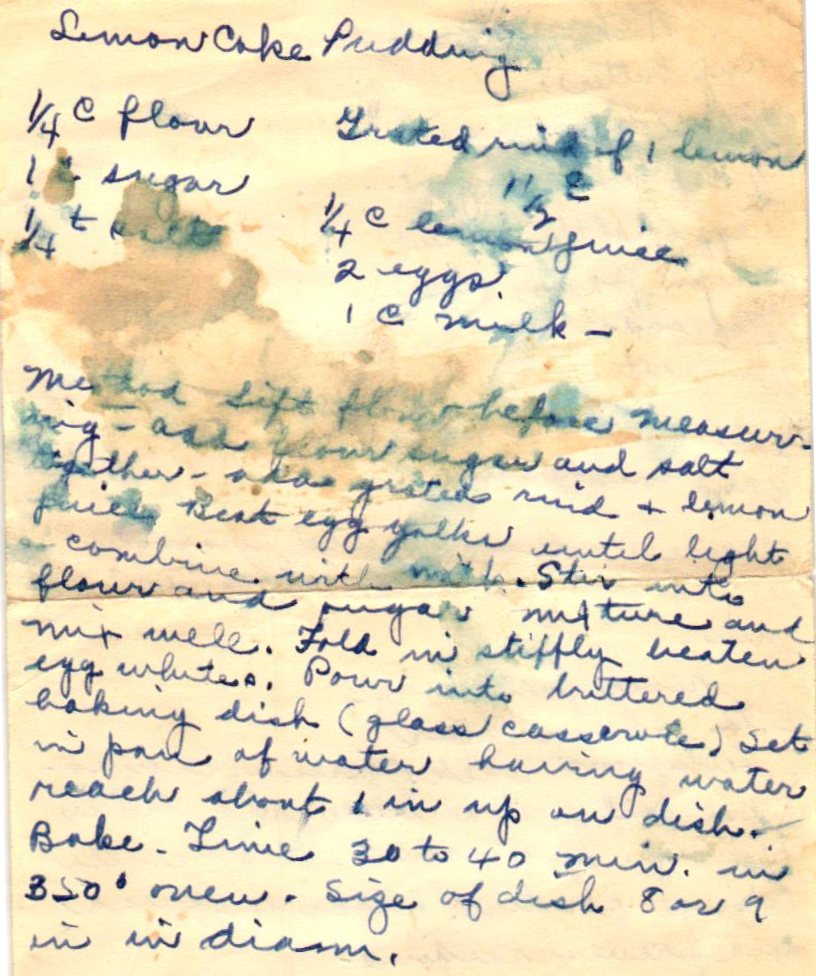 Lemon Cake Pudding
1/4 c flour
1 c sugar
1/4 t salt
Grated rind of 1 lemon
1 1/2 c
1/4 c lemon juice
2 eggs
1 c milk -
Method Sift flour before measur-
ing - add flour sugar and salt
together - add grated rind + lemon
juice. Beat egg yolks until light
- combine with milk. Stir into
flour and sugar mixture and
mix well. Fold in stiffly beaten
egg whites. Pour into buttered
baking dish (glass casserole) Set
in pan of water having water
reach about 1 in up on dish.
Bake - Time 30 to 40 min. in
350° oven. Size of dish 8 or 9
in in diam.